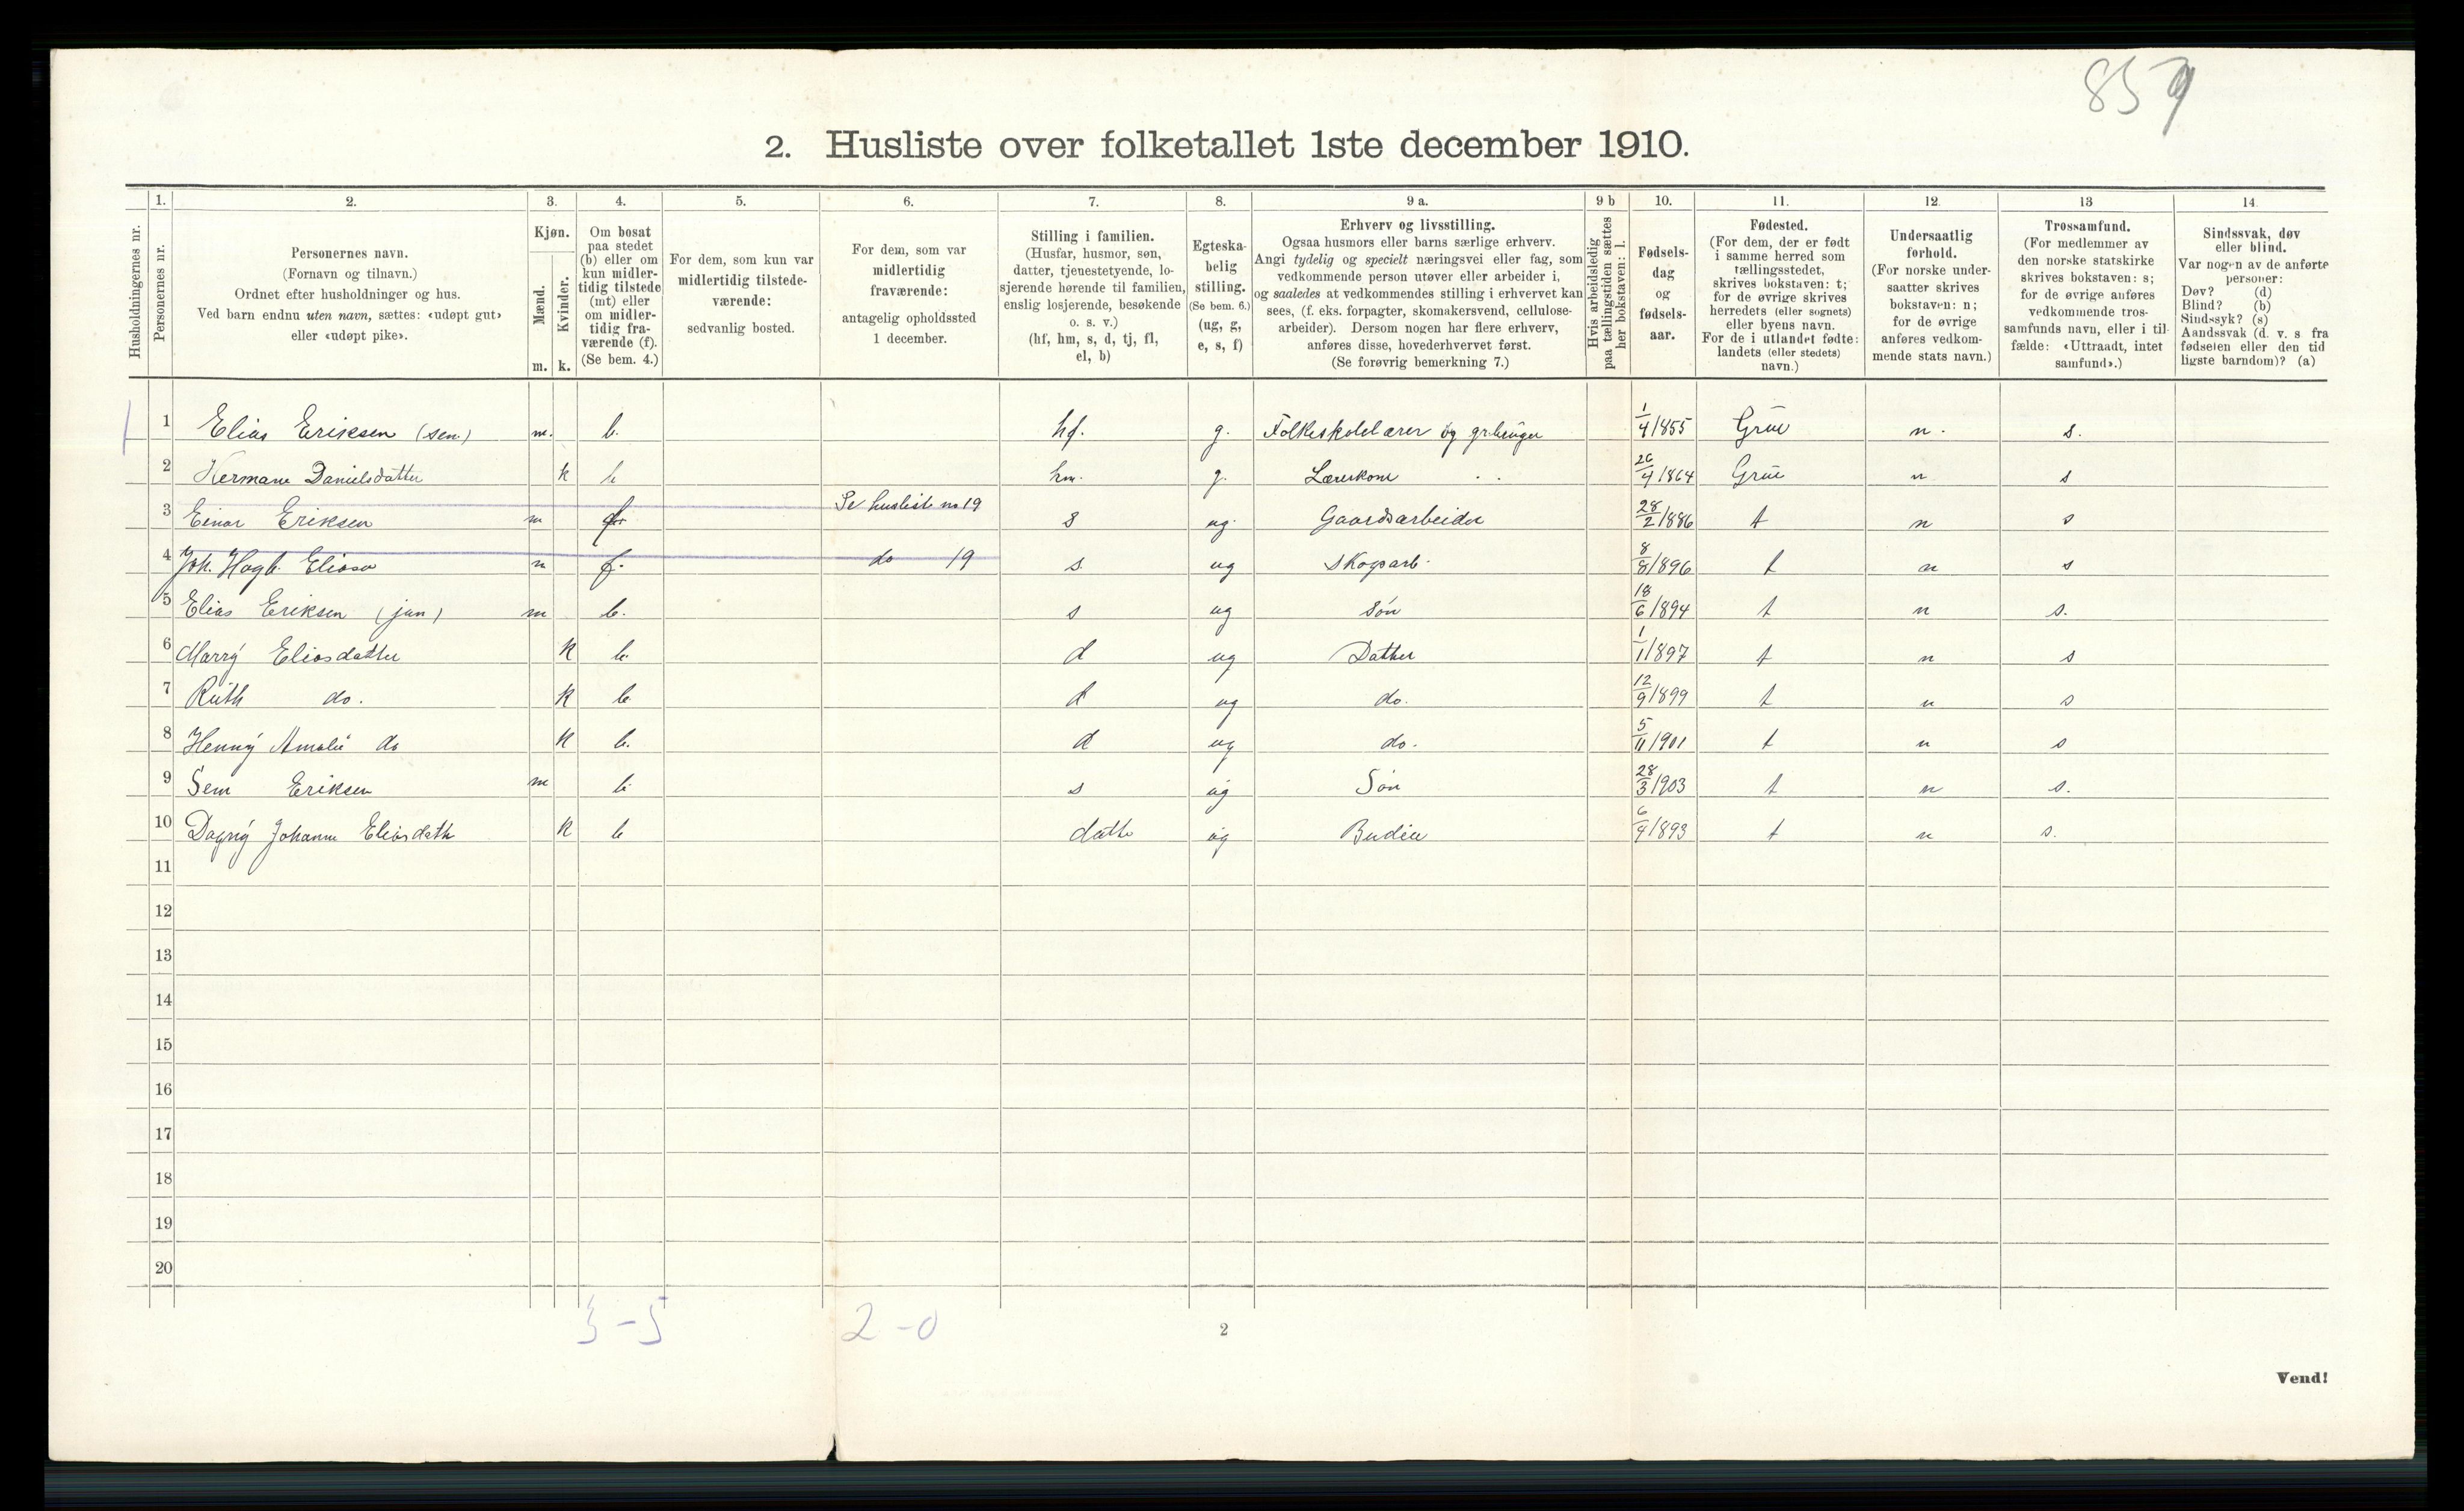 859
2. Husliste over folketallet 1ste december 1910.
Husholdningernes nr.
1.
Personernes nr.
2.
Personernes navn.
(Fornavn og tilnavn.)
Ordnet efter husholdninger og hus.
Ved barn endnu uten navn, sættes: «udøpt gut»
eller «udøpt pike».
3.
Kjøn.
Mænd.
Kvinder.
m. k.
4.
Om bosat
paa stedet
(b) eller om
kun midler-
tidig tilstede
(mt) eller
om midler-
tidig fra-
værende (f).
(Se bem. 4.)
5.
For dem, som kun var
midlertidig tilstede-
værende:
sedvanlig bosted.
6.
For dem, som var
midlertidig
fraværende:
antagelig opholdssted
1 december.
7.
Stilling i familien.
(Husfar, husmor, søn,
datter, tjenestetyende, lo-
sjerende hørende til familien,
enslig losjerende, besøkende
o. s. v.)
(hf, hm, s, d, tj, fl,
el, b)
8.
Egteska-
belig
stilling.
(Se bem. 6.)
(ug, g,
e, s, f)
9 a.
Erhverv og livsstilling.
Ogsaa husmors eller barns særlige erhverv.
Angi tydelig og specielt næringsvei eller fag, som
vedkommende person utøver eller arbeider i,
og saaledes at vedkommendes stilling i erhvervet kan
sees, (f. eks. forpagter, skomakersvend, cellulose-
arbeider). Dersom nogen har flere erhverv,
anføres disse, hovederhvervet først.
(Se forøvrig bemerkning 7.)
9 b
Hvis arbeidsledig
paa tællingstiden sættes
her bokstaven: l.
10.
Fødsels-
dag
og
fødsels-
aar.
11.
Fødested.
(For dem, der er født
i samme herred som
tællingsstedet,
skrives bokstaven: t;
for de øvrige skrives
herredets (eller sognets)
eller byens navn.
For de i utlandet fødte:
landets (eller stedets)
navn.)
12.
Undersaatlig
forhold.
(For norske under-
saatter skrives
bokstaven: n;
for de øvrige
anføres vedkom-
mende stats navn.)
13
Trossamfund.
(For medlemmer av
den norske statskirke
skrives bokstaven: s;
for de øvrige anføres
vedkommende tros-
samfunds navn, eller i til-
fælde: «Uttraadt, intet
samfund».)
14
Sindssvak, døv
eller blind.
Var nogen av de anførte
personer:
Døv? (d)
Blind? (b)
Sindssyk? (s)
Aandssvak (d. v. s fra
fødselen eller den tid
ligste barndom)? (a)
1 Elias Eriksen (sen.) m. b. hf. g. Folkeskolelærer og grbruger 1/4 1855 Grue n. s.
2 Hermane Danielsdatter k b hm. g. Lærerkone 26/4 1864 Grue n s
3 Einar Eriksen m f Se husliste no 19 s ug. Gaardsarbeider 28/2 1886 t n s
4 Joh. Hagb. Eliasen m f. do 19 s. ug Skogsarb. 8/8 1896 t n s
5 Elias Eriksen (jun) m b. s ug søn 18/6 1894 t n s.
6 Marry Eliasdatter k b. d ug Datter 1/1 1897 t n s
7 Ruth do. k b. d ug do. 12/9 1899 t n s
8 Henny Amalie do k b. d ug do. 5/11 1901 t n s
9 Sem Eriksen m b. s ug Søn 28/3 1903 t n s.
10 Dagny Johanne Eliasdatt k b datt ug Budeie 6/4 1893 t n s.
11
12
13
14
15
16
17
18
19
20
3-5 2-0
2
Vend!